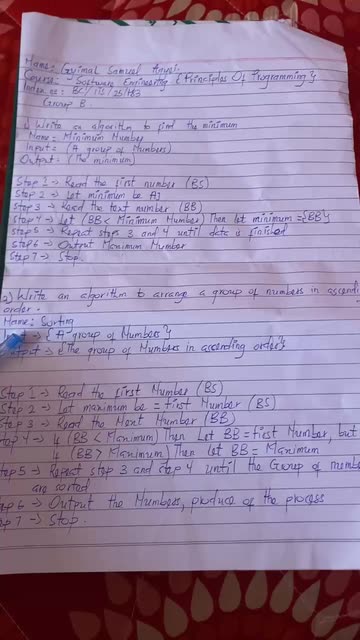 Name:- Gyimah Samuel
Course:- Software Engineering {Principles Of Programming}
Index no: BC/ITS/25/
Group B.
1) Write an algorithm to find the minimum
Name = Minimum Number
Input = (A group of Numbers)
Output = (The minimum)
Step 1 → Read the first number (BS)
Step 2 → Let minimum be
Step 3 → Read the next number (BB)
Step 4 → Let (BB < Minimum Number) Then let minimum = {BB}
Step 5 → Repeat steps 3 and 4 until data is finished
Step 6 → Output Maximum Number
Step 7 → Stop.
2) Write an algorithm to arrange a group of numbers in ascending
order.
Name: Sorting
→ {A group of Numbers}
output → {The group of Numbers in ascending order}
Step 1 → Read the first Number (BS)
Step 2 → Let maximum be = first Number (BS)
Step 3 → Read the Next Number (BB)
Step 4 → If (BB < Maximum) Then Let BB = first Number, but
if (BB > Maximum) Then let BB = Maximum
Step 5 → Repeat step 3 and step 4 until the Group of number
are sorted
ep 6 → Output the Numbers, produce of the process
ep 7 → Stop.